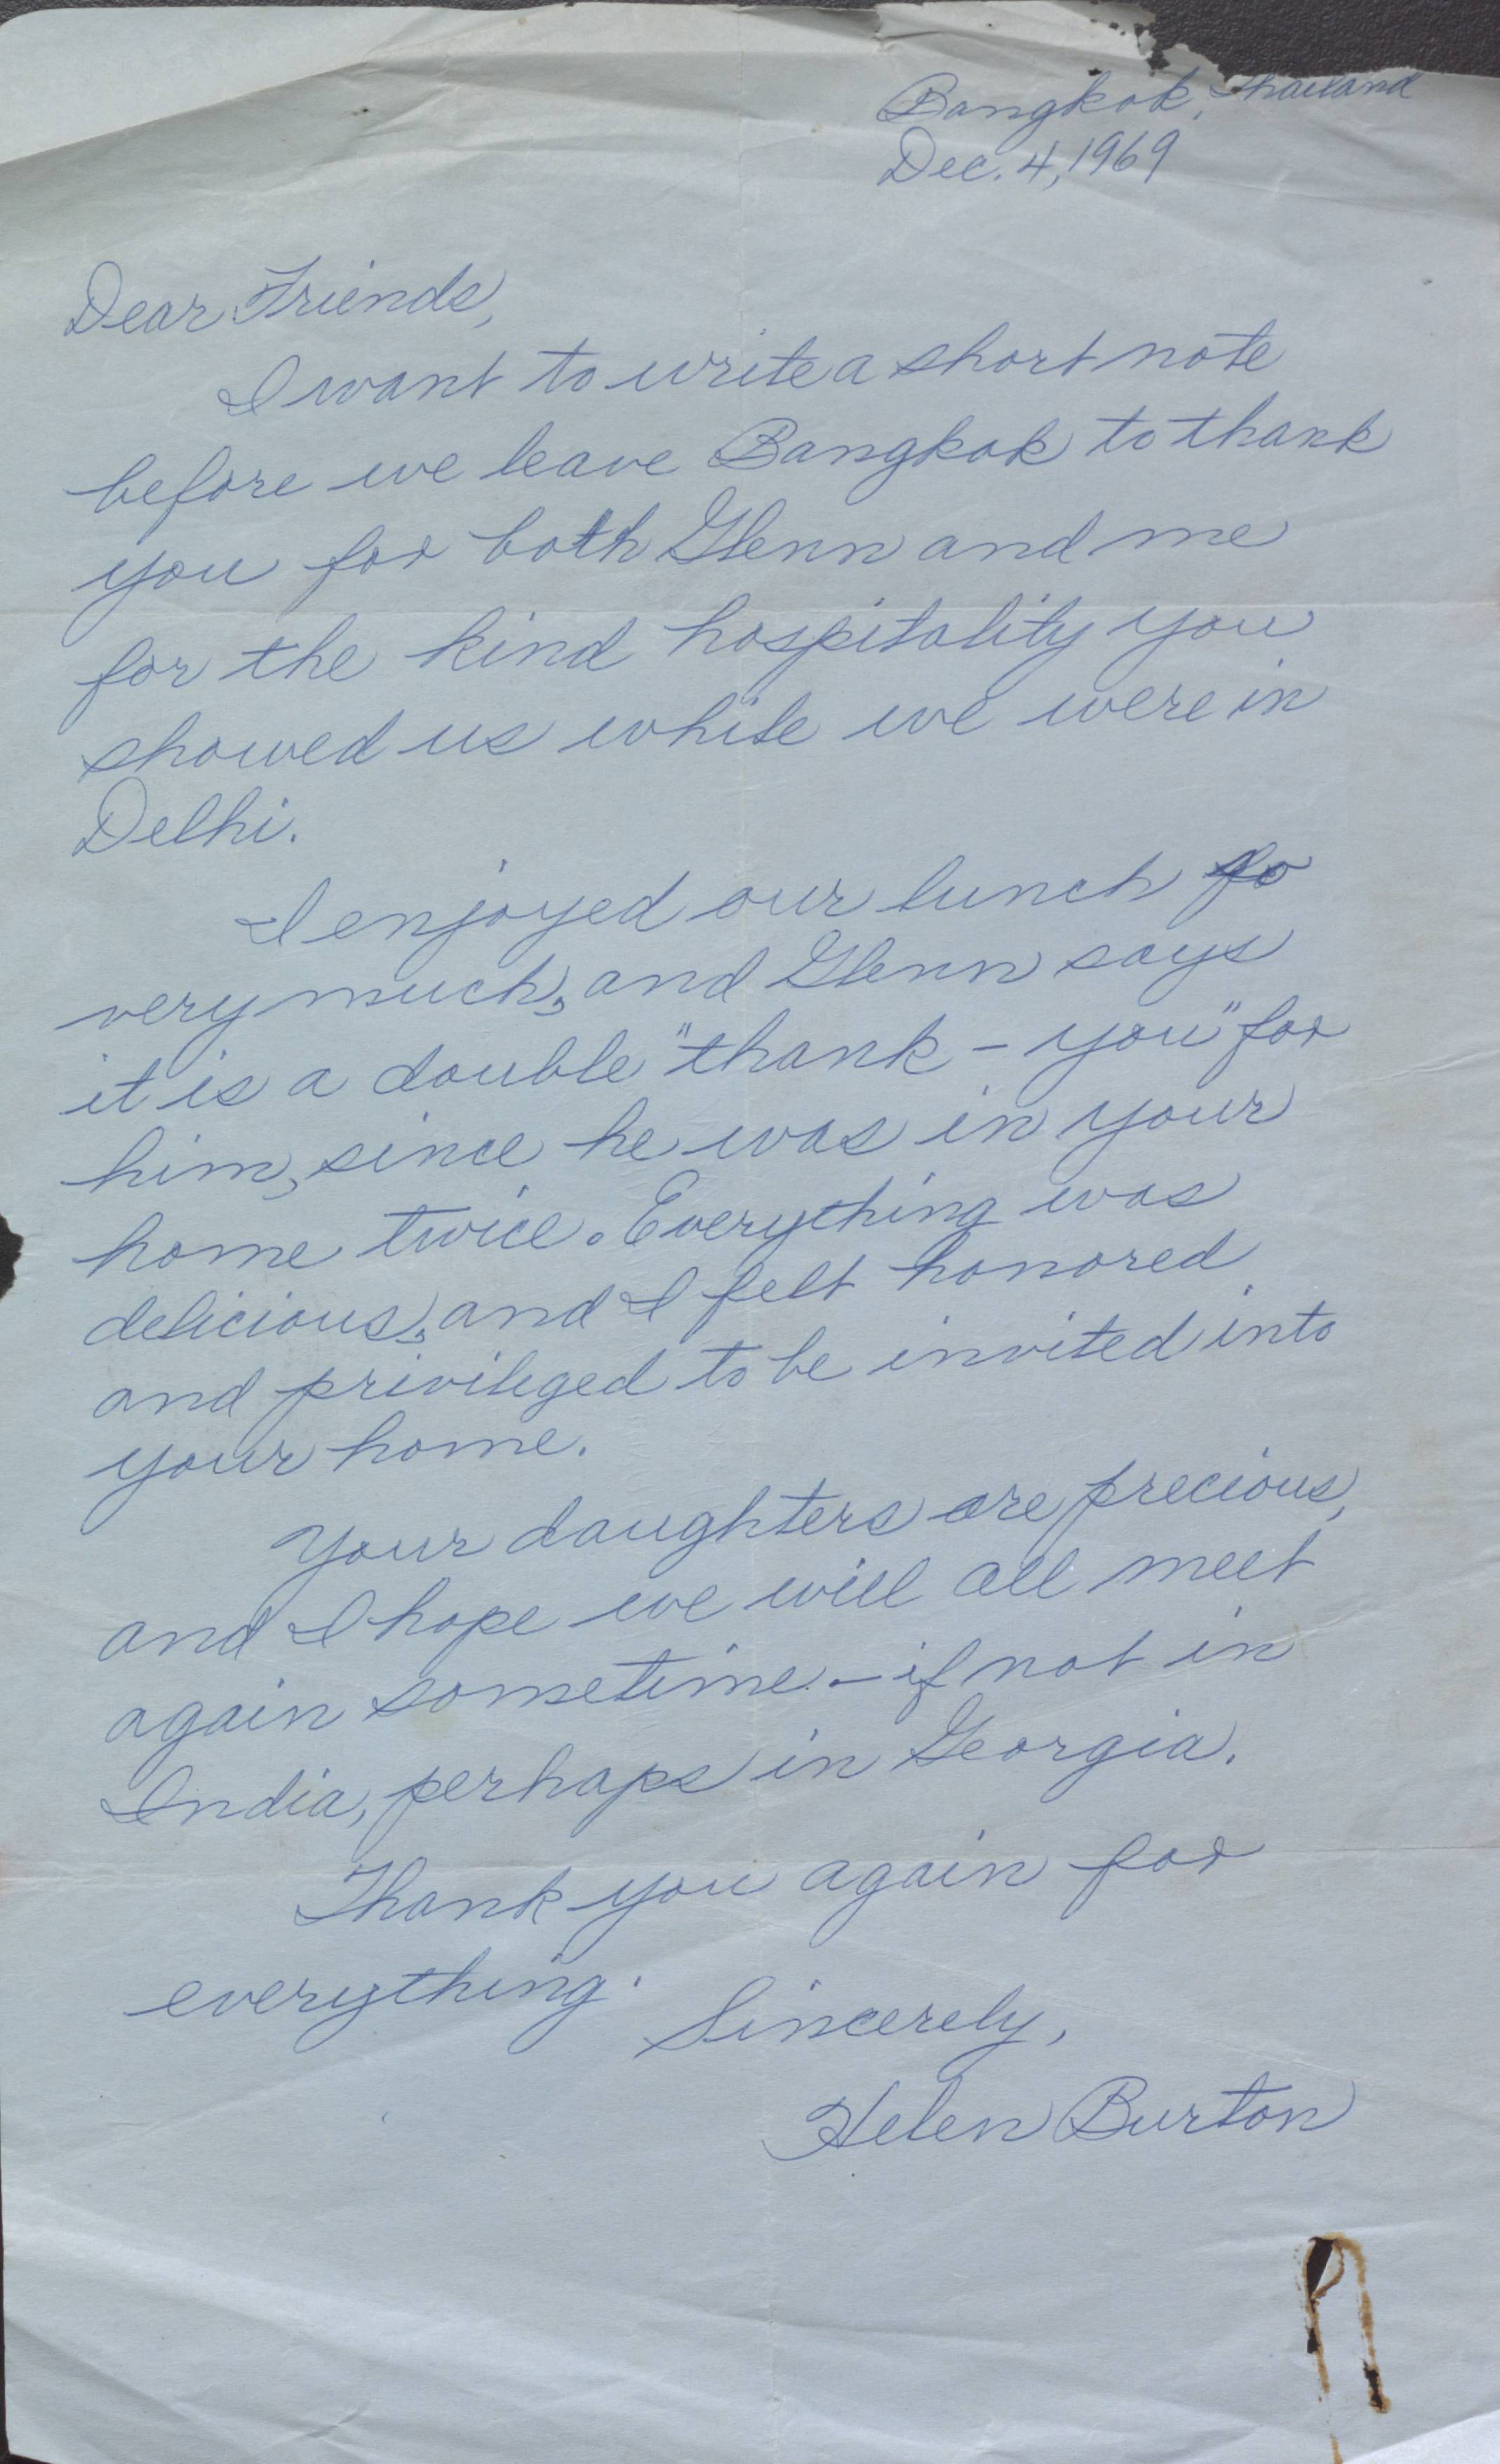 Bangkok, Thailand
Dec. 4, 1969
Dear Friends,
I want to write a short note
before we leave Bangkok to thank
you for both Glenn and me
for the kind hospitality you
showed us while we were in
Delhi.
I enjoyed our lunch so
very much, and Glenn says
it is a double "thank-you" for
him, since he was in your
home twice. Everything was
delicious, and I felt honored
and privileged to be invited into
your home.
Your daughters are precious,
and I hope we will all meet
again sometime - if not in
India, perhaps in Georgia.
Thank you again for
everything.
Sincerely,
Helen Burton